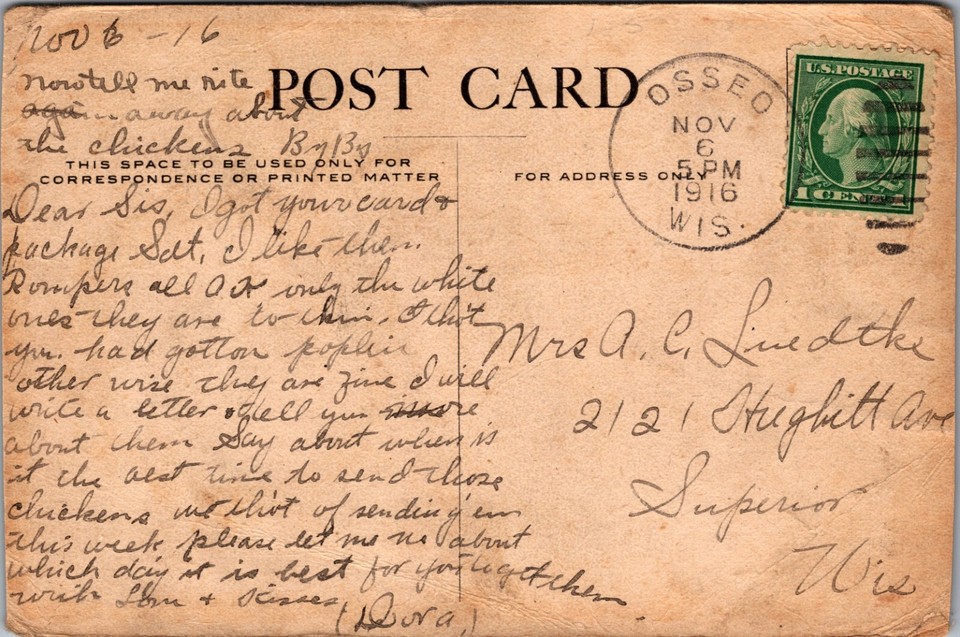 Nov 6 - 16
Now tell me rite
again away about
the chickens By By
POST CARD
THIS SPACE TO BE USED ONLY FOR
CORRESPONDENCE OR PRINTED MATTER
FOR ADDRESS ONLY
OSSEO
NOV
6
5 PM
1916
WIS.
U.S. POSTAGE
1 CENT
Dear Sis, I got your card &
package Sat, I like them
Rompers all only the white
ones they are to thin. I thot
you had gotton poplin
other wise they are fine I will
write a letter & tell you more
about them Say about when is
it the best time to send those
chickens we thot of sending em
this week please let me no about
which day it is best for you to get them
with Love + Kisses
(Dora,)
Mrs A. C. Luedtke
2121 Hughitt Ave
Superior
Wis